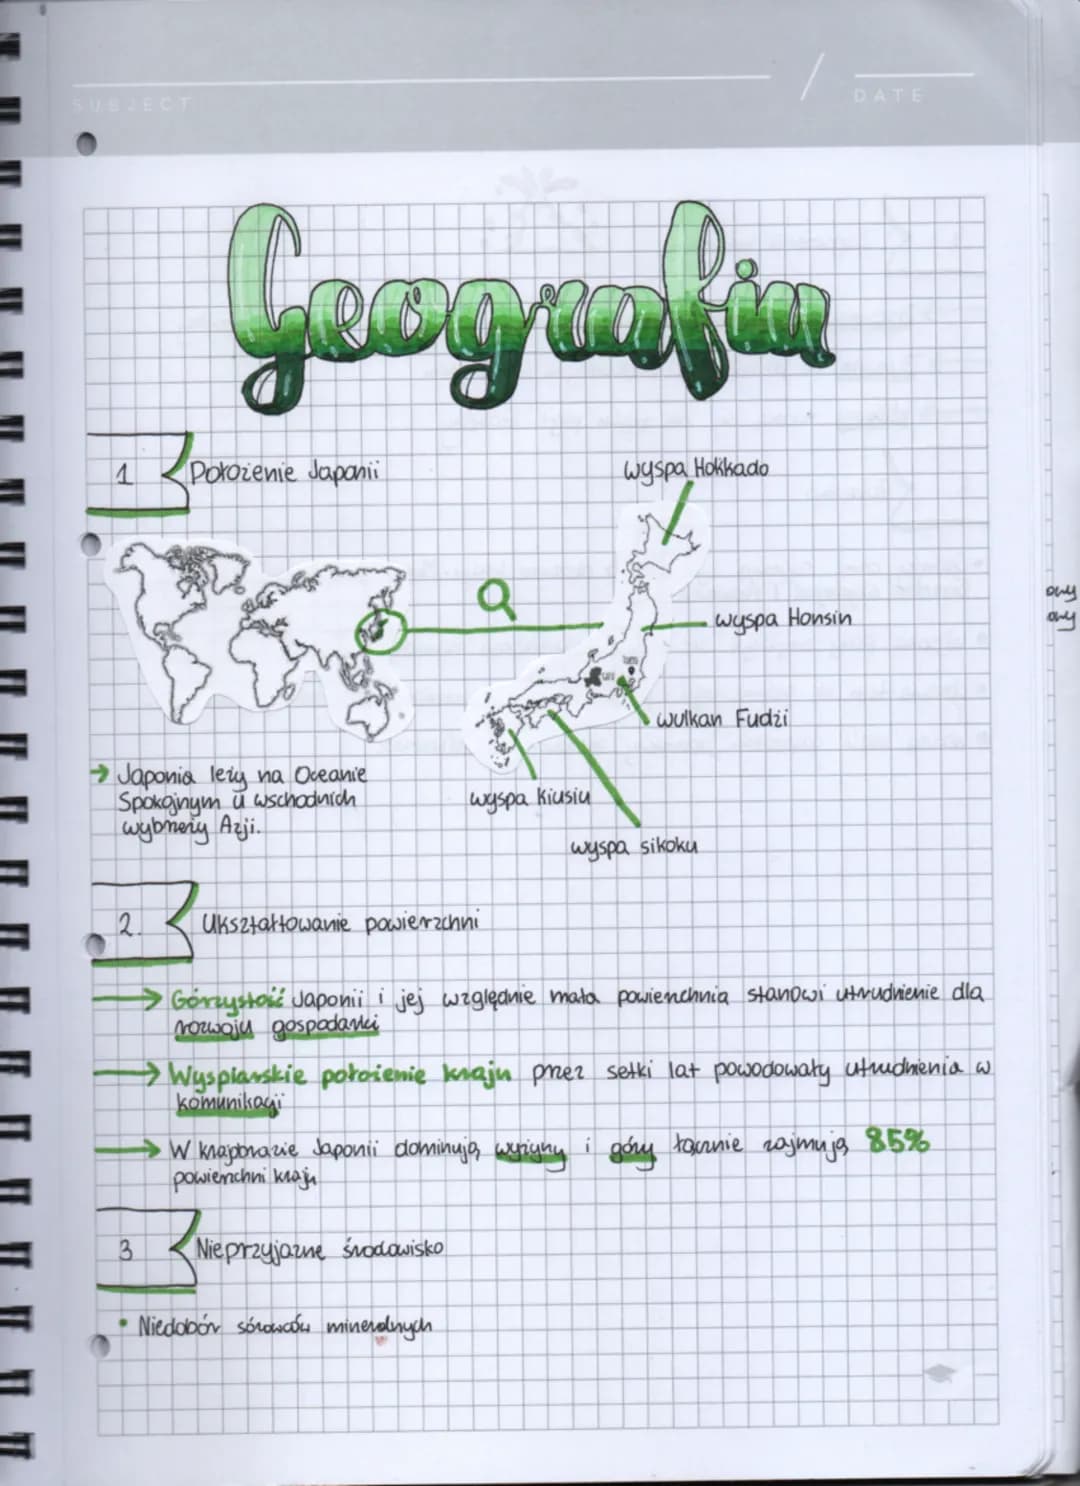 SUBJECT
DATE
Geografia
1 Położenie Japonii
wyspa Hokkado
wyspa Honsin
wulkan Fudżi
wyspa Kiusiu
wyspa sikoku
→ Japonia leży na Oceanie
Spokojnym u wschodnich
wybrzeży Azji.
2. Ukształtowanie powierzchni
→ Górzystość Japonii i jej względnie mała powierzchnia stanowi utrudnienie dla
rozwoju gospodarki
→ Wyspiarskie położenie kraju przez setki lat powodowały utrudnienia w
komunikacji
→ W krajobrazie Japonii dominują wyżyny i góry łącznie zajmują 85%
powierzchni kraju
3 Nieprzyjazne środowisko
• Niedobór sórowców mineralnych